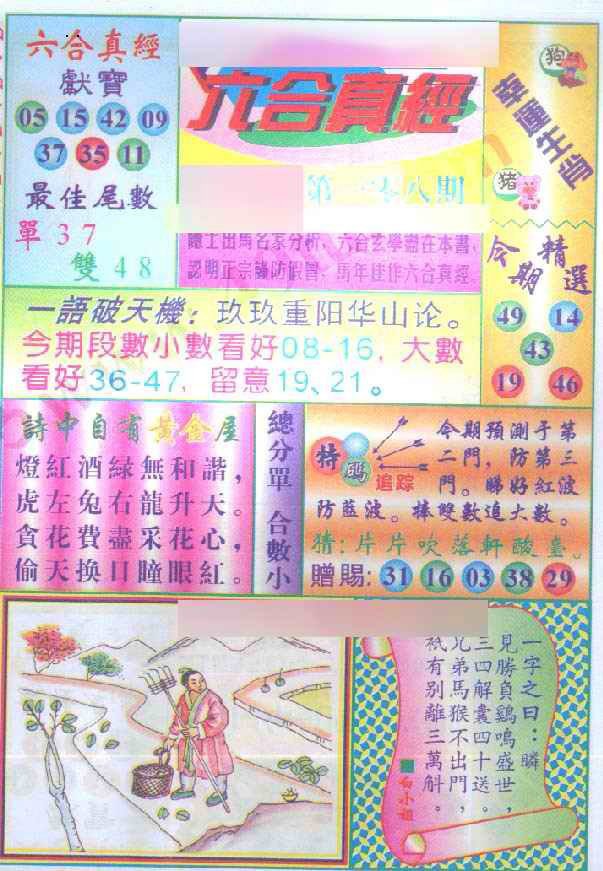 六合真經
獻寶
05 15 42 09
37 35 11
最佳尾數
單 3 7
雙 4 8
六合真經
期
狗
幸運生肖
猪
總士出馬名家分析、六合玄學盡在本書、
認明正宗謹防假冒、馬年佳作六合真經。
今期精選
49 14
43
19 46
一語破天機：玖玖重阳华山论。
今期段數小數看好08-16, 大數
看好36-47, 留意19、21。
詩中自有黃金屋
燈紅酒緑無和諧，
虎左兔右龍升天。
貪花費盡采花心，
偷天換日瞳眼紅。
總分單 合數小
特碼
追踪
今期預測于第
二門，防第三
門。睇好紅波
防藍波。捧雙數追大數。
猜：片片吹落軒酸臺。
贈賜：31 16 03 38 29
一字之曰：瞵
見勝負鷄鳴盛世，
三四解囊四十送。
兄弟馬猴不出門，
祇有别離三萬斛。
白小姐